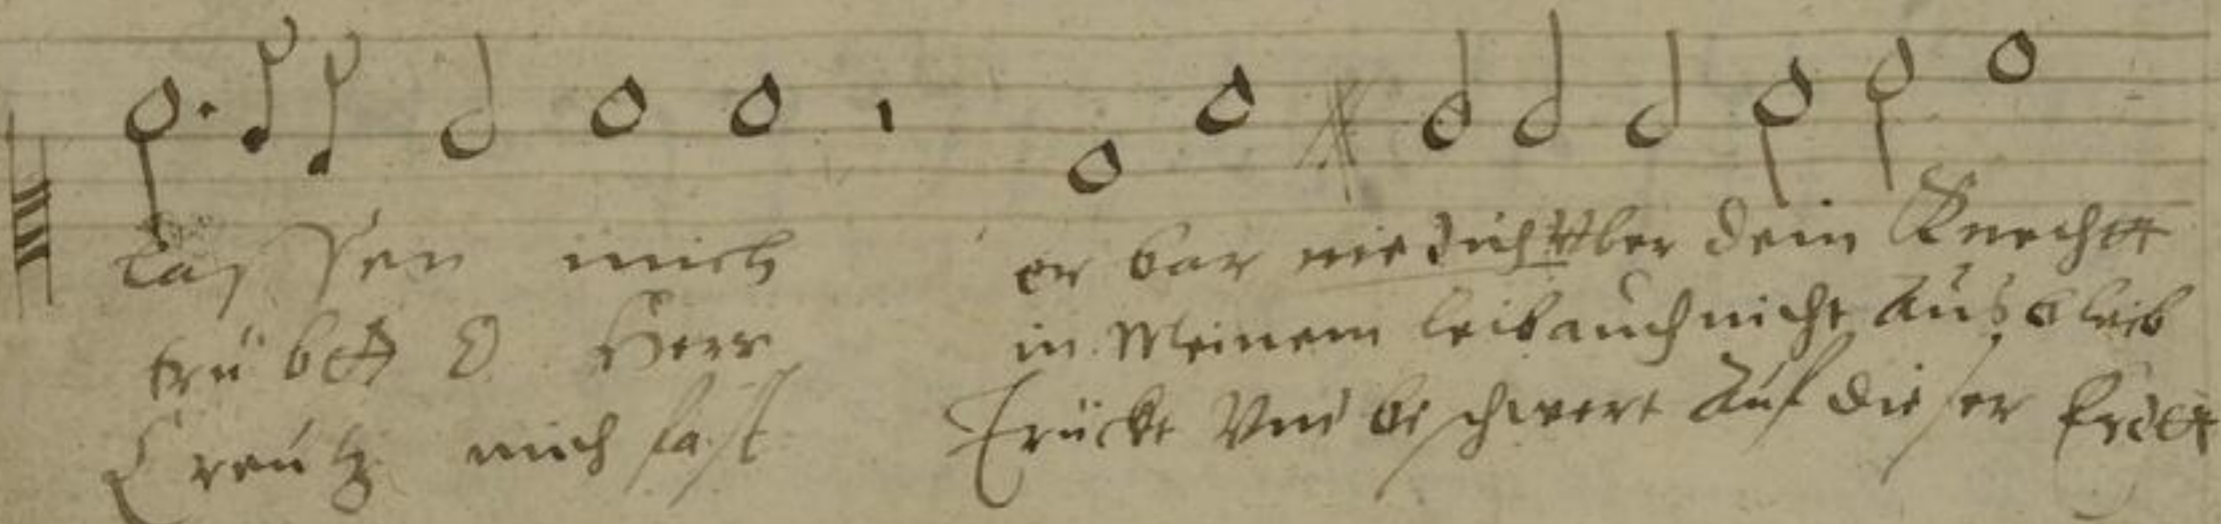 Las sen mich er bar me dich Vber dein Knecht
trü bet O Herr in Meinem leib auch nicht Aus bleib
Creutz mich fast Trückt Vnd be schwert Auf die ser Erdt